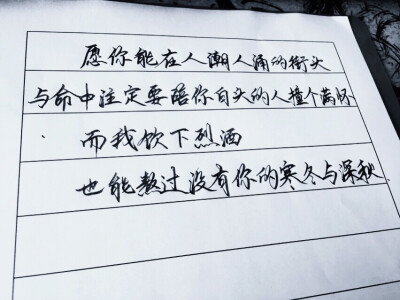 愿你能在人潮人涌的街头
与命中注定要陪你白头的人撞个满怀
而我饮下烈酒
也能熬过没有你的寒冬与深秋.